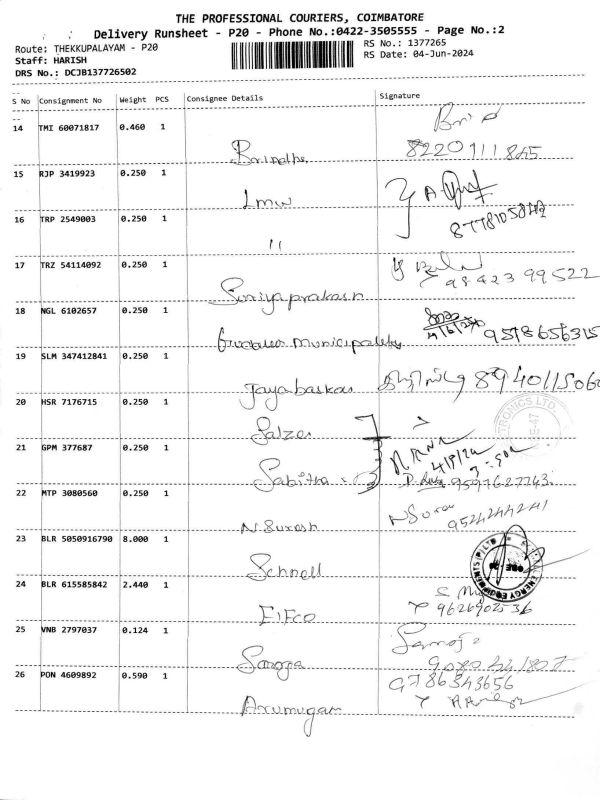 THE PROFESSIONAL COURIERS, COIMBATORE
Delivery Runsheet - P20 - Phone No.:0422-3505555 - Page No.:2
Route: THEKKUPALAYAM - P20
RS No.: 1377265
Staff: HARISH
RS Date: 04-Jun-2024
DRS No.: DCJB137726502
S No Consignment No Weight PCS Consignee Details Signature
14 TMI 60071817 0.460 1
Brindha
8220111845
15 RJP 3419923 0.250 1
Lmw
16 TRP 2549003 0.250 1
"
17 TRZ 54114092 0.250 1
Suriyaprakash
9842399522
18 NGL 6102657 0.250 1
Gudalur municipality
9578656315
19 SLM 347412841 0.250 1
Jayabaskar
20 HSR 7176715 0.250 1
Salzer
21 GPM 377687 0.250 1
Sabitha
9597627743
22 MTP 3080560 0.250 1
N.Suresh
9524244241
23 BLR 5050916790 8.000 1
Schnell
24 BLR 615585842 2.440 1
EIFCO
9626902536
25 VNB 2797037 0.124 1
26 PON 4609892 0.590 1
9786343656
Arumugam